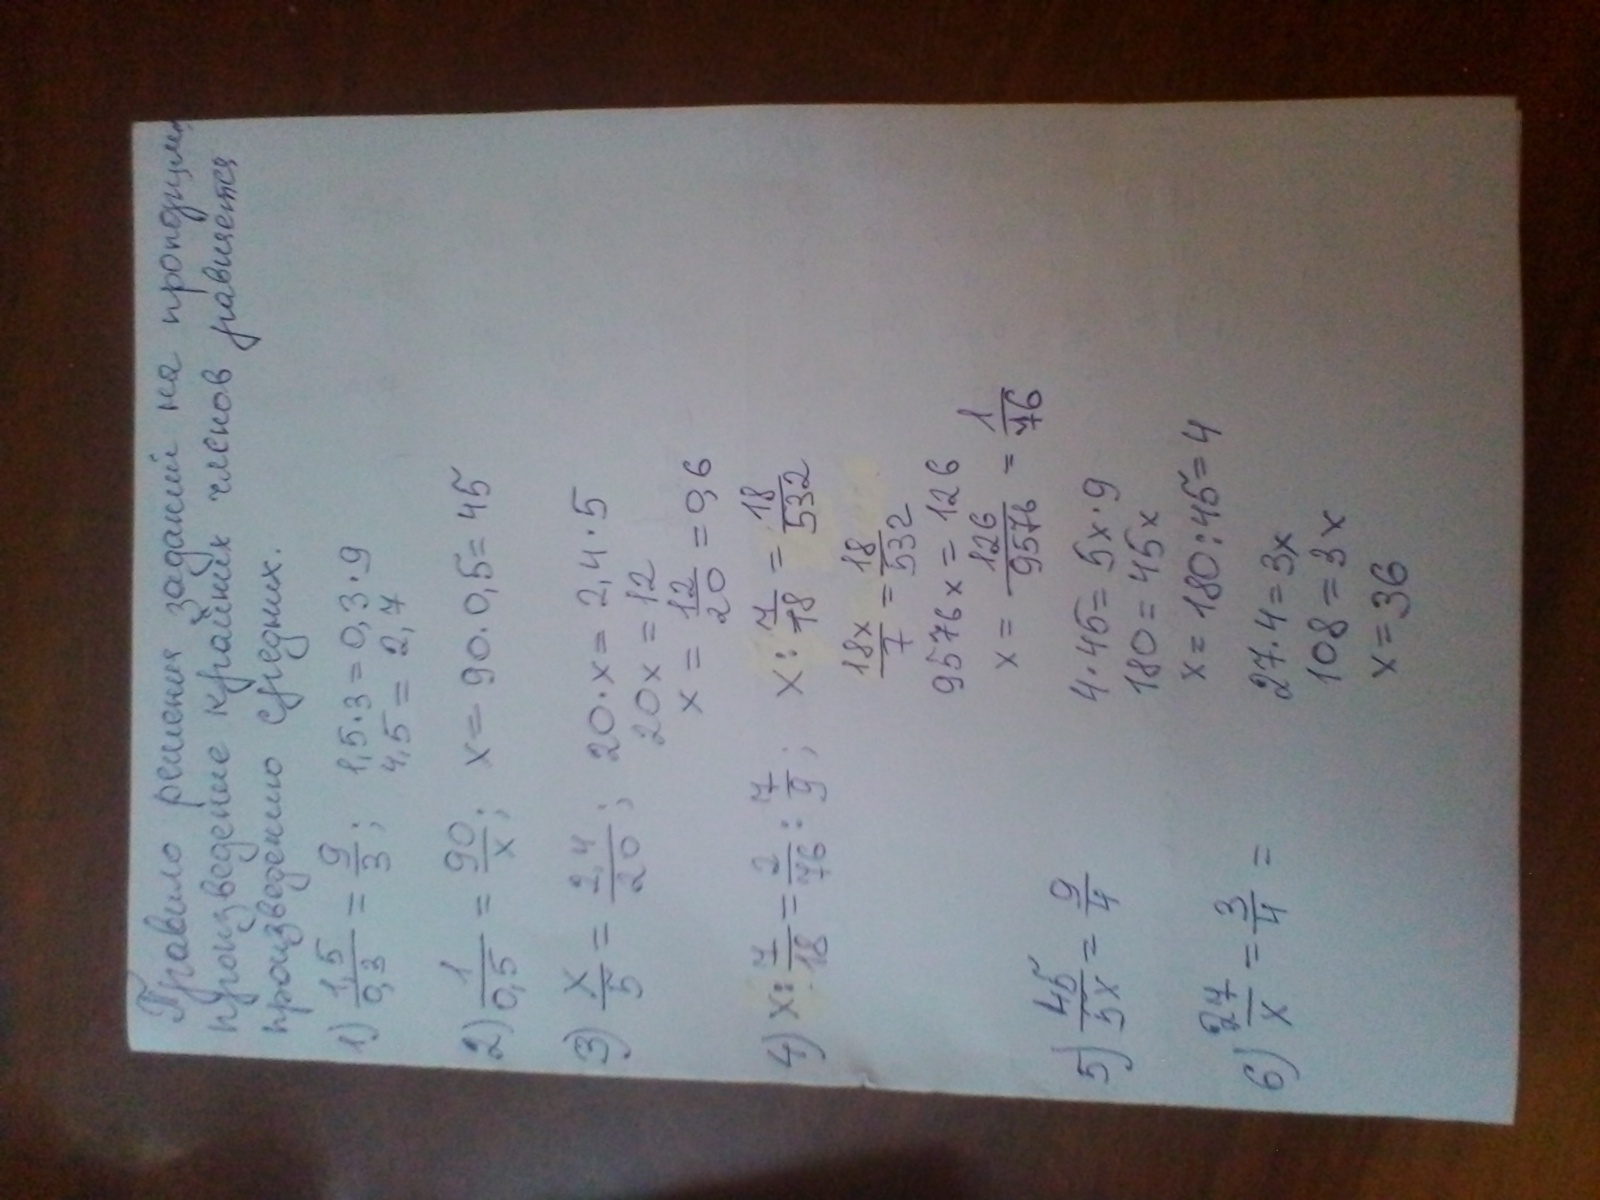 Правило решения заданий на пропорции
произведение крайних членов равняется
произведению средних.
1) 1,5/0,3 = 9/3; 1,5·3=0,3·9
4,5 = 2,7
2) 1/0,5 = 90/x; x = 90·0,5=45
3) x/5 = 2,4/20; 20·x = 2,4·5
20x = 12
x = 12/20 = 0,6
4) x:7/18 = 2/76:7/9; x:7/18 = 18/532
18x/7 = 18/532
9576x = 126
x = 126/9576 = 1/76
5) 45/5x = 9/4 4·45 = 5x·9
180 = 45x
x = 180:45=4
6) 27/x = 3/4 = 27·4=3x
108 = 3x
x = 36